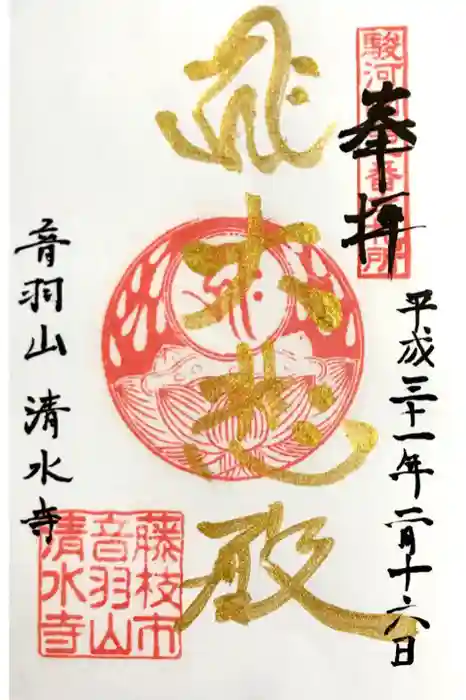 駿河 番 所
奉拝
平成三十一年二月十六日
大悲殿
音羽山 清水寺
藤枝市
音羽山
清水寺